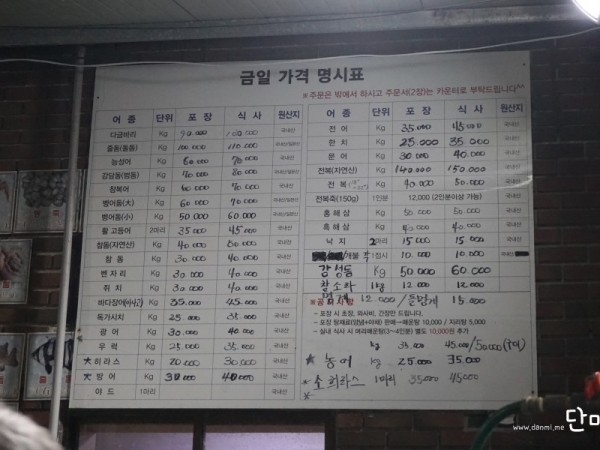 금일 가격 명시표
※주문은 밖에서 하시고 주문서(2장)는 카운터로 부탁드립니다^^
어 종 단위 포 장 식 사 원산지
다금바리 Kg 90.000 100.000 국내산
돌돔(줄돔) Kg 100.000 110.000
능성어 Kg 60.000 70.000 국내산
강담돔(범돔) Kg 70.000 80.000
참복어 Kg 60.000 70.000 국내산
병어돔(大) Kg 60.000 70.000
병어돔(小) Kg 50.000 60.000
활 고등어 2마리 35.000 45.000 국내산
참돔(자연산) Kg 40.000 50.000 국내산
참 돔 Kg 30.000 40.000
벤자리 Kg 30.000 40.000 국내산
쥐 치 Kg 30.000 40.000 국내산
바다장어 Kg 35.000 45.000 국내산
독가시치 Kg 25.000 35.000 국내산
광 어 Kg 30.000 40.000 국내산
우 럭 Kg 25.000 35.000 국내산
*히라스 Kg 20.000 30.000 국내산
*방 어 Kg 30.000 40.000 국내산
야 드 1마리 국내산
어 종 단위 포 장 식 사 원산지
전 어 Kg 35.000 45.000 국내산
한 치 Kg 25.000 35.000 국내산
문 어 Kg 30.000 40.000 국내산
전복(자연산) Kg 140.000 150.000 국내산
전 복 Kg 40.000 50.000 국내산
전복죽(150g) 1인분 12,000 (2인분이상 가능)
홍해삼 Kg 50.000 50.000 국내산
흑해삼 Kg 40.000 40.000 국내산
낙 지 2마리 15.000 15.000 국내산
개불 1접시 10.000 10.000 국내산
감성돔 Kg 50.000 60.000
참소라 1kg 12.000 12.000
멍게 12.000 / 돌멍게 15.000
※공 지 사 항
- 포장 시 초장, 와사비, 간장만 드립니다.
- 포장 탕재료(양념+야채) 판매→매운탕 10,000 / 지리탕 5,000
- 실내 식사 시 머리매운탕(3~4인분) 별도 10,000원 추가
kg 35.000 45.000/50.000
* 농어 kg 25.000 35.000
* 소히라스 1마리 35.000 45.000
*
www.danmi.me 단미